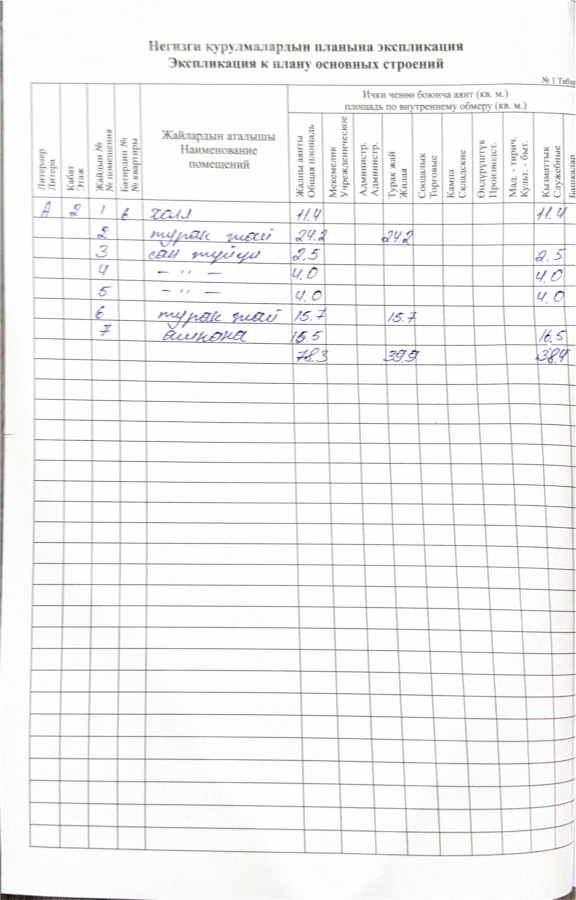 Негизги курулмалардын планына экспликация
Экспликация к плану основных строений
№ 1 Табли
Литерлер
Литера
Кабат
Этаж
Жайдын №
№ помещения
Батирдин №
№ квартиры
Жайлардын аталышы
Наименование
помещений
Ички ченөө боюнча аянт (кв. м.)
площадь по внутреннему обмеру (кв. м.)
Жалпы аянты
Общая площадь
Мекемелик
Учрежденическое
Администр.
Администр.
Турак жай
Жилая
Соодалык
Торговые
Кампа
Складские
Өндүрүштүк
Производст.
Мад. - тирич.
Культ. - быт.
Кызматтык
Служебные
Башкалар
А 2 1 6 холл 11.4 11.4
2 турак жай 24.2 24.2
3 сан түйүн 2.5 2.5
4 – '' – 4.0 4.0
5 – '' – 4.0 4.0
6 турак жай 15.7 15.7
7 ашкана 16.5 16.5
78.3 39.9 38.4